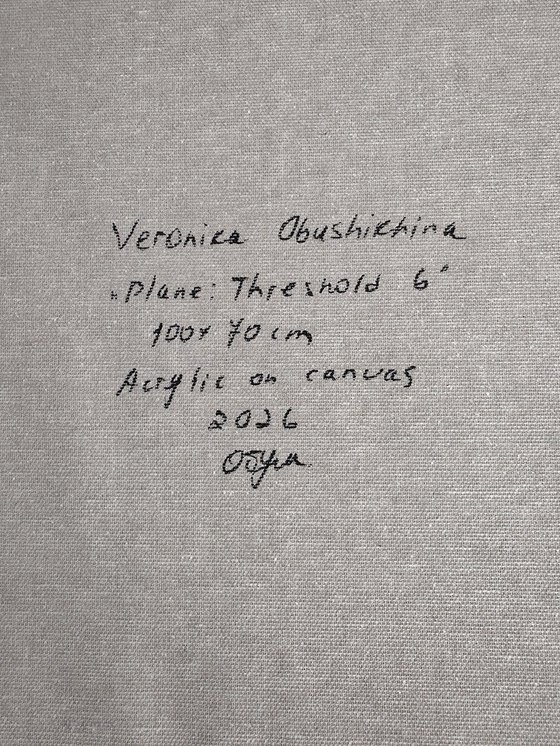 Veronica Obushikhina
"Plane: Threshold 6"
100x 70 cm
Acrylic on canvas
2026